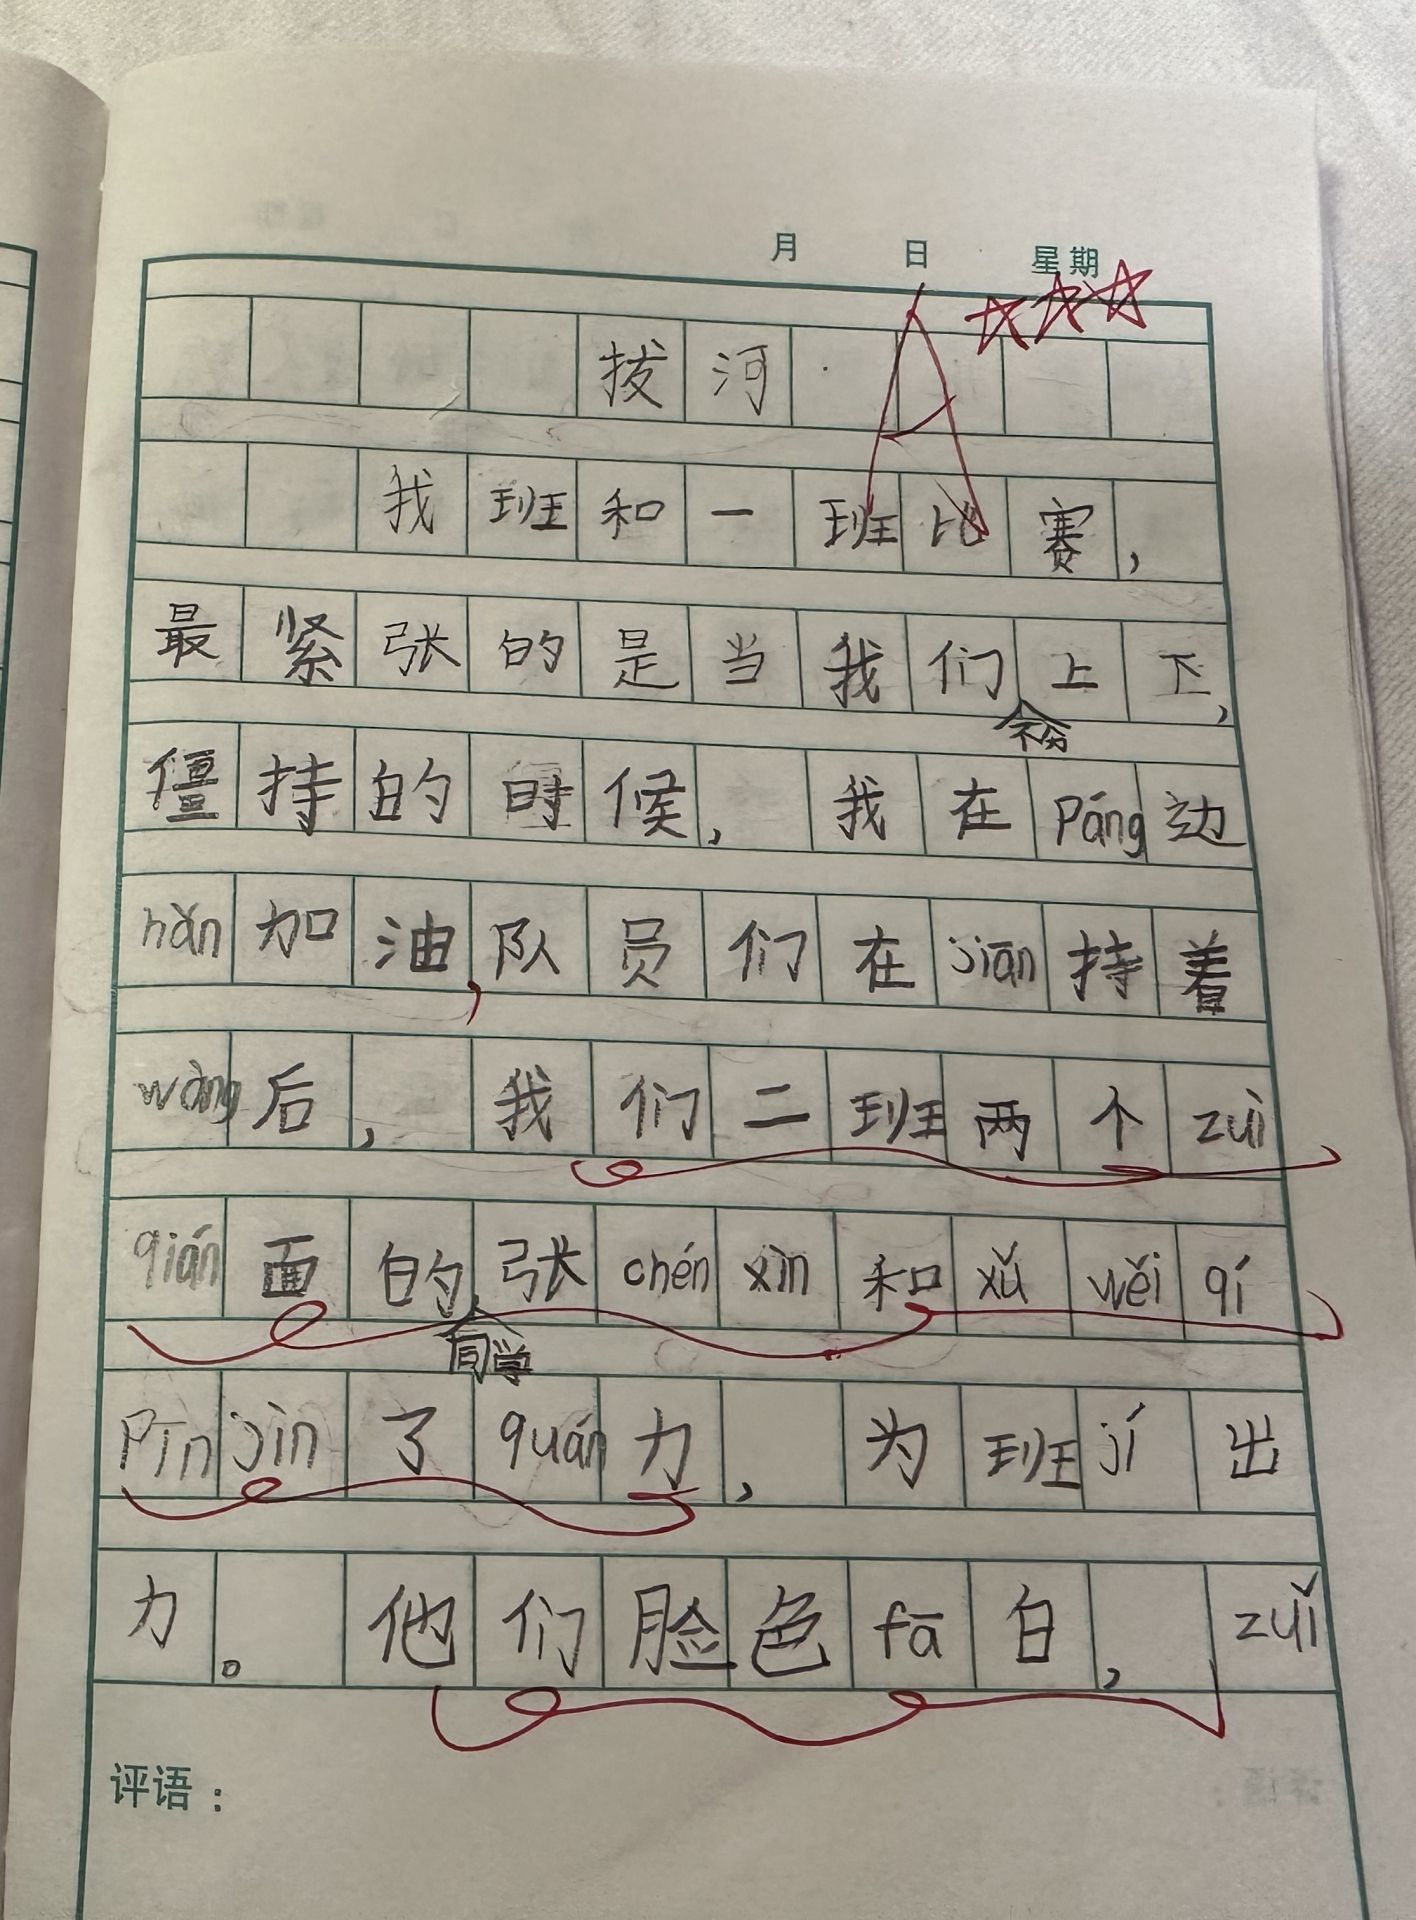 月 日 星期
A
拔河
我班和一班比赛，
最紧张的是当我们上下，
不分
僵持的时候，我在páng边
hǎn加油，队员们在jiān持着
wàng后，我们二班两个zuì
qián面的张chén xìn和xǔ wěi qí
同学
Pīn jìn了quán力，为班jí出
力。他们脸色fā白，zuǐ
评语：